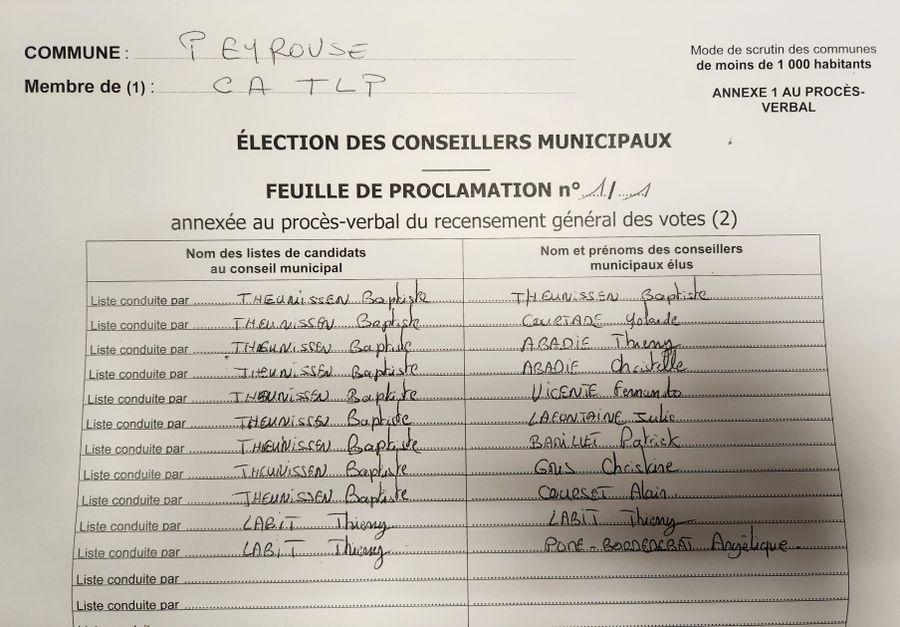 COMMUNE : PEYROUSE
Membre de (1) : CA TLP
Mode de scrutin des communes
de moins de 1 000 habitants
ANNEXE 1 AU PROCÈS-
VERBAL
ÉLECTION DES CONSEILLERS MUNICIPAUX
FEUILLE DE PROCLAMATION n° 1/1
annexée au procès-verbal du recensement général des votes (2)
Nom des listes de candidats
au conseil municipal
Nom et prénoms des conseillers
municipaux élus
Liste conduite par THEUNISSEN Baptiste THEUNISSEN Baptiste
Liste conduite par THEUNISSEN Baptiste COURTADE Yolande
Liste conduite par THEUNISSEN Baptiste ABADIE Thierry
Liste conduite par THEUNISSEN Baptiste ABADIE Christelle
Liste conduite par THEUNISSEN Baptiste VICENTE
Liste conduite par THEUNISSEN Baptiste LAFONTAINE Julie
Liste conduite par THEUNISSEN Baptiste Patrick
Liste conduite par THEUNISSEN Baptiste Christine
Liste conduite par THEUNISSEN Baptiste COURSET Alain
Liste conduite par LABIT Thierry LABIT Thierry
Liste conduite par LABIT Thierry Angélique
Liste conduite par
Liste conduite par